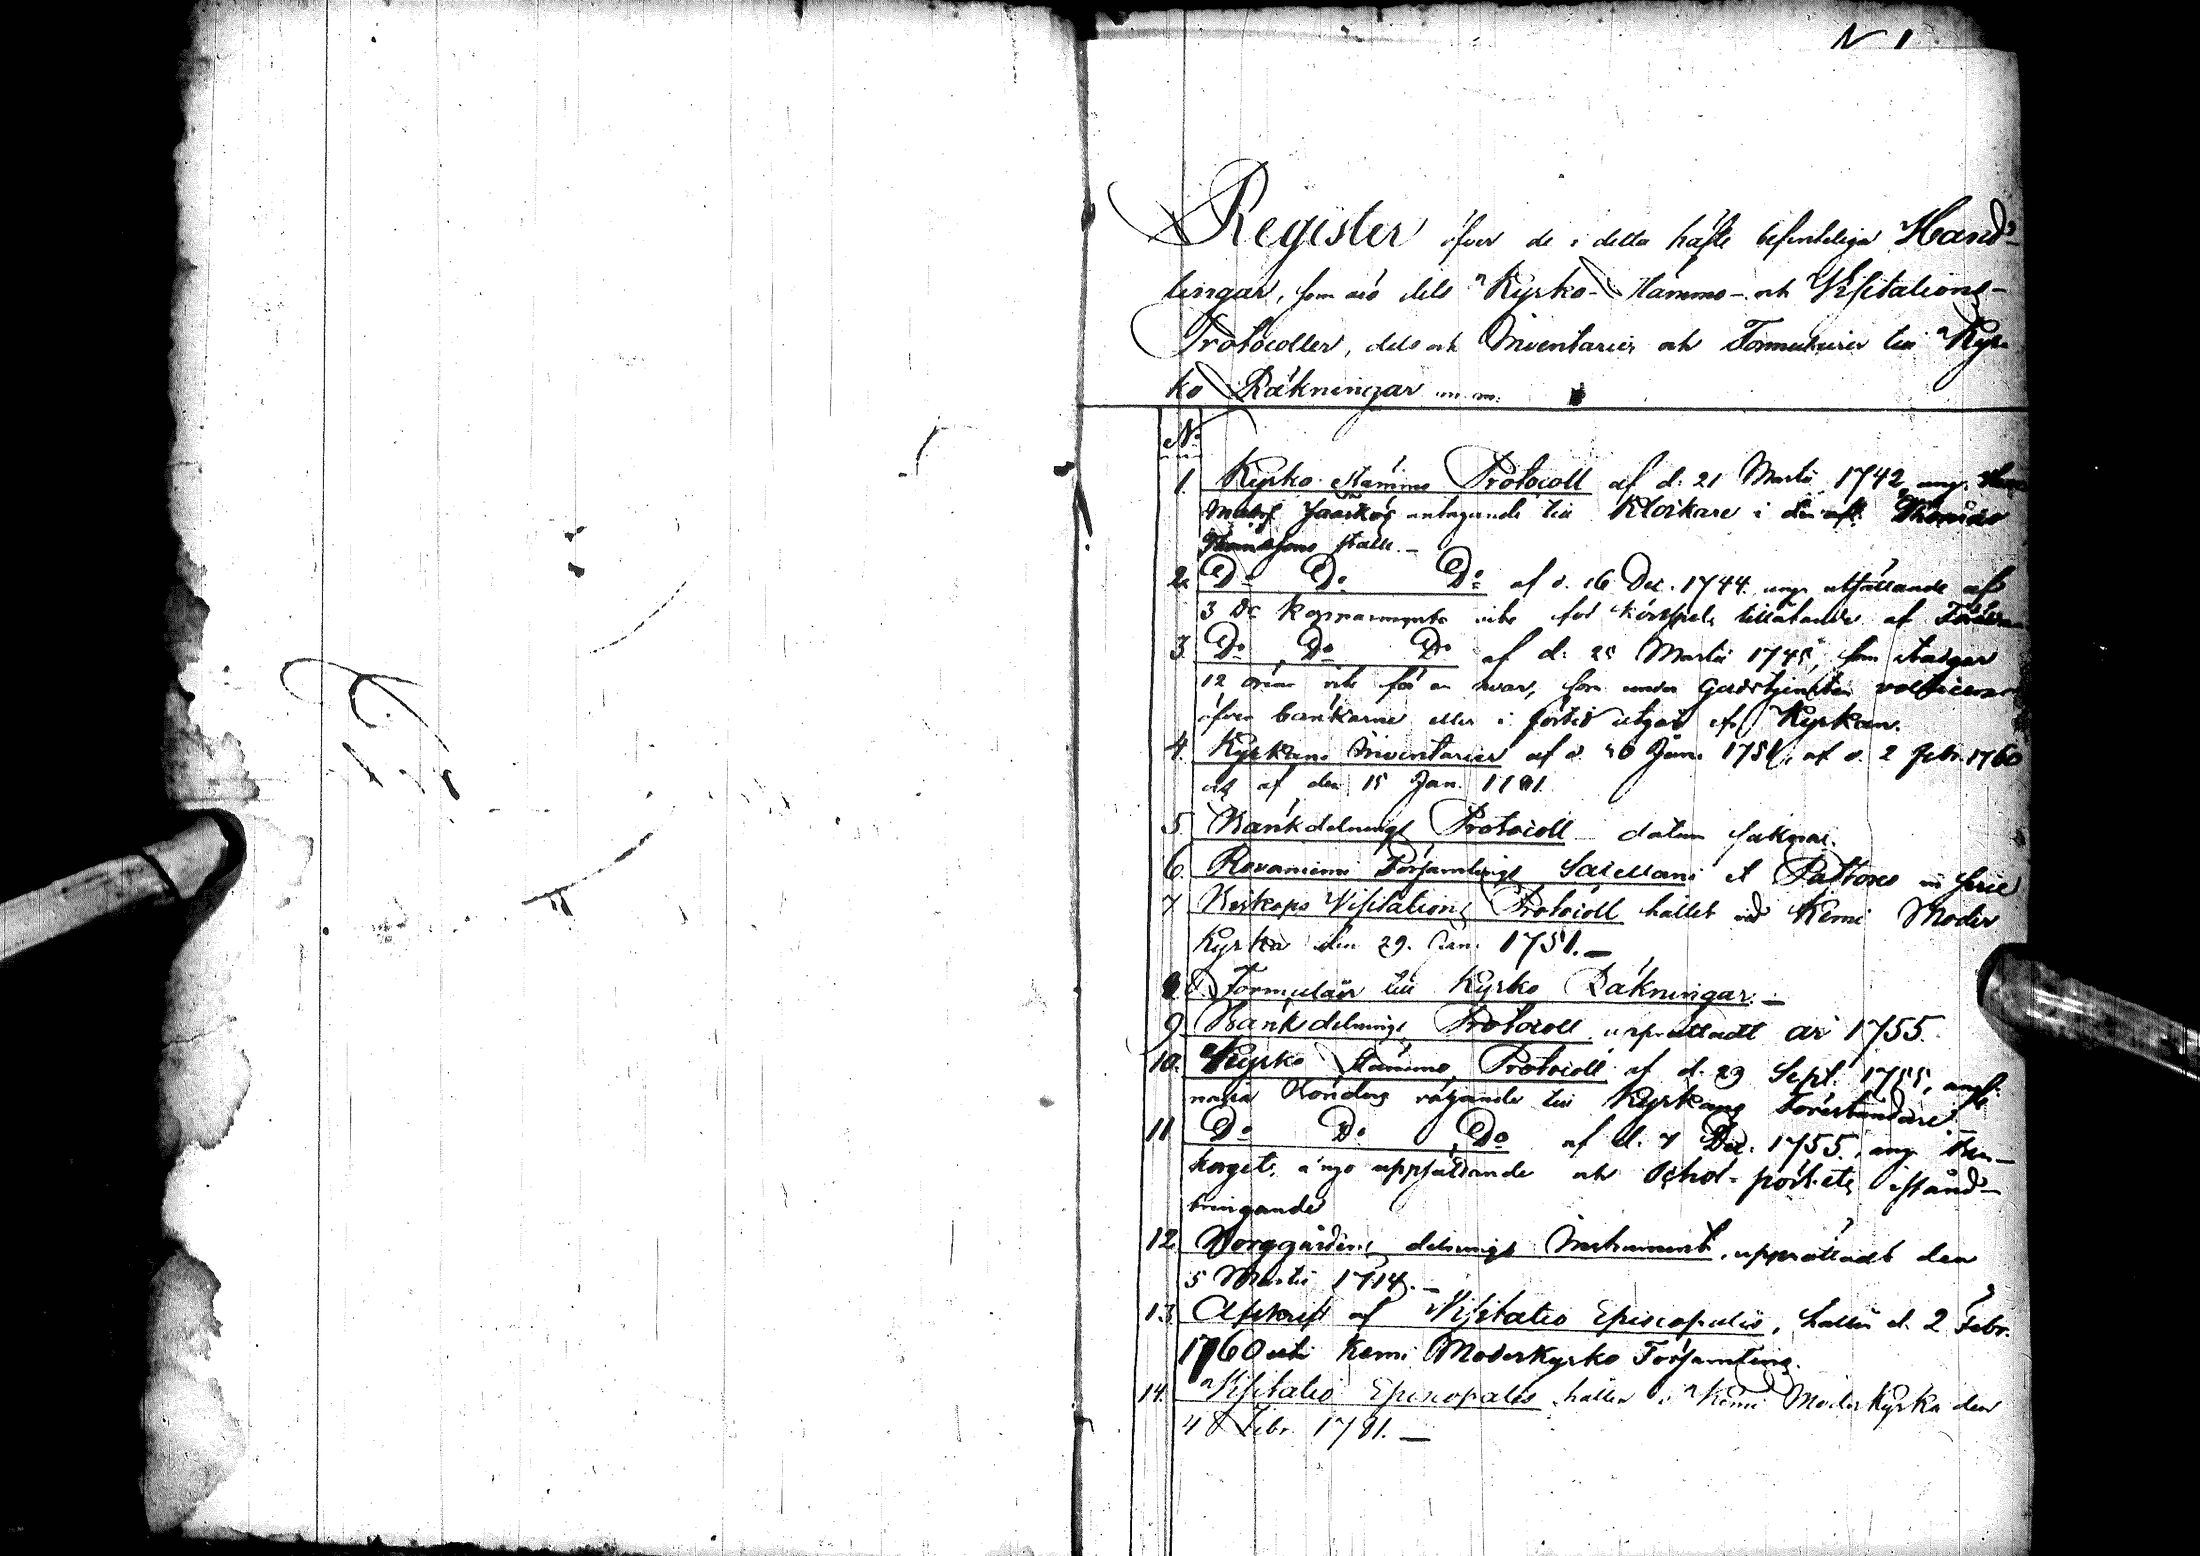 N 1
Register öfver de i detta häfte befinteliga Hand-
lingar, som äro dels Kyrko-Stämmo- och Visitations-
Protocoller, dels och Inventarier och Formulairer till Kyr-
ko Räkningar m. m.
No
1. Kyrko-Stämmo Protocoll af d. 21 Martii 1742 ang.
antagande till Klockare i Thomas
ställe.-
2. Do Do Do af d. 16 Dec. 1744 ang.
3 Dr Kopparmynts vite för tillåtande af
3. Do Do Do af d. 25 Martii 1745, som stadgar
12 vite för en hvar, som under Gudstjensten
öfver bänkarne eller i förtid utgår ur Kyrkan.
4. Kyrkans Inventarier af d. 26 Jan. 1751, af d. 2 Febr. 1760
och af den 15 Jan. 1781.
5. Bänkdelnings Protocoll datum saknas.
6. Rovaniemi Församlings Sacellani et Pastores in serie
7 Biskops Visitations Protocoll hållet vid Kemi Moder
Kyrka den 29. Jan. 1751.-
8. Formulair till Kyrko Räkningar.-
9 Bänkdelnings Protocoll upprättadt år 1755.
10. Kyrko Stämmo Protocoll af d. 29 Sept. 1755, ang.
till Kyrkans Föreståndare.
11 Do Do Do af d. 7 Dec. 1755, ang. Ben-
horgets å nyo uppsättande och istånd-
bringande
12. delnings Instrument, upprättadt den
5 Martii
13. Afskrift af Visitatio Episcopalis, hållen d. 2 Febr.
1760 uti Kemi Moderkyrko Församling.
14. Visitatio Episcopalis hållen i Kemi Moderkyrka den
Febr. 1781.-